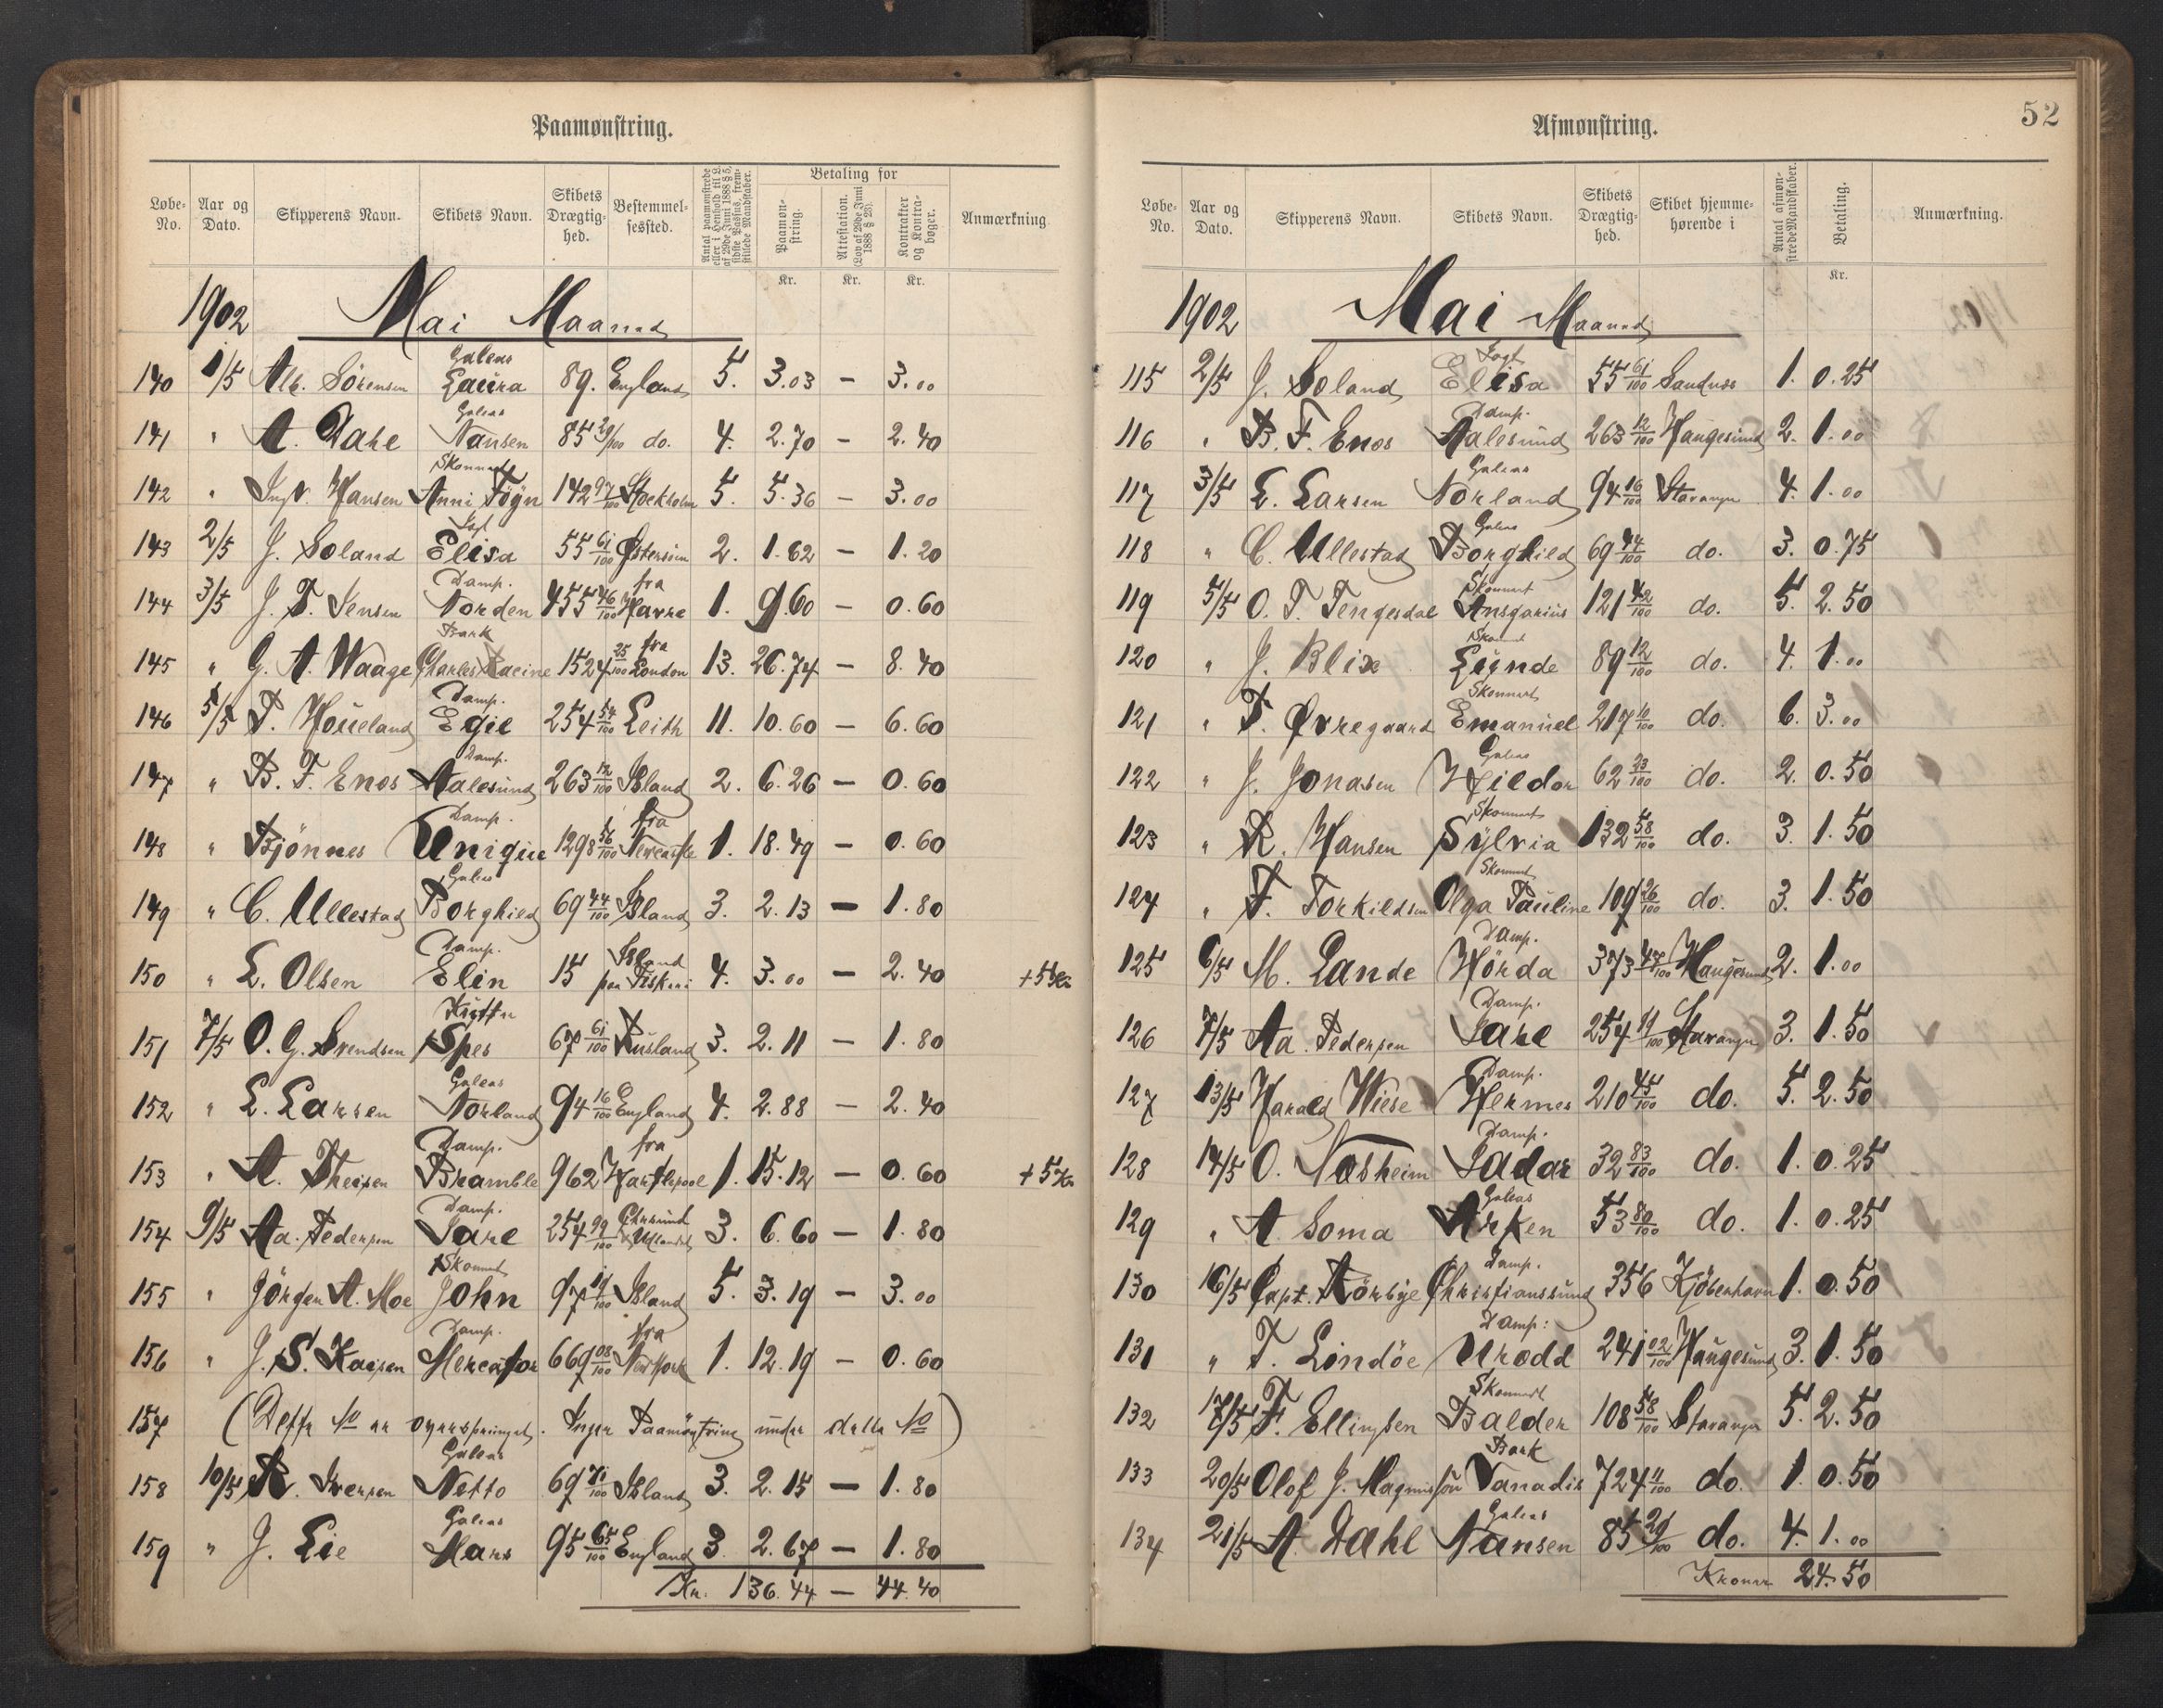 Paamønstring.
Løbe-No. Aar og Dato. Skipperens Navn. Skibets Navn. Skibets Drægtighed. Bestemmelsessted. Antal paamønstrede eller i Henhold til L. af 29de Juni 1888 § 5, sidste Passus, fremstillede Mandskaber. Betaling for Paamønstring. Attestation. (Lov af 29de Juni 1888 § 23). Kontrakter og Kontrabøger. Anmærkning.
Kr. Kr. Kr.
1902 Mai Maaned
140 1/5 Alb. Sörensen Galeas Laura 89. England 5. 3.03 — 3.00
141 " A. Dahl Galeas Nansen 85 29/100 do. 4. 2.70 — 2.40
142 " Ingv. Hansen Skonnert Anni Tögn 142 97/100 Stockholm 5. 5.36 — 3.00
143 2/5 J. Soland Jagt Elisa 55 61/100 Østersöen 2. 1.62 — 1.20
144 3/5 J. T. Jensen Damp. Norden 455 46/100 fra Havre 1. 9.60 — 0.60
145 " G. A. Waage Bark Charles Racine 1524 25/100 fra London 13. 26.74 — 8.40
146 5/5 T. Houeland Damp. Egil 254 54/100 Leith 11. 10.60 — 6.60
147 " B. F. Enos Damp. Aalesund 263 12/100 Island 2. 6.26 — 0.60
148 " Bjönnes Damp. Unique 1298 56/100 fra Newcastle 1. 18.49 — 0.60
149 " C. Ullestad Galeas Borghild 69 44/100 Island 3. 2.13 — 1.80
150 " L. Olsen Damp. Elin 15 Island paa Fiskeri 4. 3.00 — 2.40 + 5 Kr
151 7/5 O. G. Svendsen Spes 67 61/100 Rusland 3. 2.11 — 1.80
152 " L. Larsen Galeas Norland 94 16/100 England 4. 2.88 — 2.40
153 " A. Theisen Damp. Bramble 962 fra Hartlepool 1. 15.12 — 0.60 + 5 Kr
154 9/5 Aa. Pedersen Damp. Jarl 254 99/100 3. 6.60 — 1.80
155 " Jörgen A. Moe Skonnert John 97 19/100 Island 5. 3.19 — 3.00
156 " J. S. Kaisen Damp. Mercator 669 08/100 fra New York 1. 12.19 — 0.60
157 (Dette No er oversprunget. Ingen Paamönstring under dette No)
158 10/5 R. Iversen Galeas Netto 69 71/100 Island 3. 2.15 — 1.80
159 " J. Lie Galeas Mars 95 65/100 England 3 2.67 — 1.80
Kr. 136.44 — 44.40
Afmønstring.
52
Løbe-No. Aar og Dato. Skipperens Navn. Skibets Navn. Skibets Drægtighed. Skibet hjemmehørende i Antal afmønstrede Mandskaber. Betaling. Anmærkning.
Kr.
1902 Mai Maaned
115 2/5 J. Soland Jagt Elisa 55 61/100 Sandnes 1. 0.25
116 " B. F. Enos Damp. Aalesund 263 12/100 Haugesund 2. 1.00
117 3/5 L. Larsen Galeas Norland 94 16/100 Stavanger 4. 1.00
118 " C. Ullestad Galeas Borghild 69 44/100 do. 3. 0.75
119 5/5 O. T. Tengesdal Skonnert Ansgarius 121 42/100 do. 5. 2.50
120 " J. Blix Skonnert Lignde 89 12/100 do. 4. 1.00
121 " T. Øvregaard Skonnert Emanuel 217 10/100 do. 6. 3.00
122 " J. Jonasen Galeas Hildor 62 23/100 do. 2. 0.50
123 " R. Hansen Skonnert Sylvia 132 58/100 do. 3. 1.50
124 " T. Torkildsen Skonnert Olga Pauline 109 26/100 do. 3. 1.50
125 6/5 M. Lande Damp. Hörda 373 47/100 Haugesund 2. 1.00
126 7/5 Aa. Pedersen Damp. Jarl 254 99/100 Stavanger 3. 1.50
127 13/5 Harald Wiese Damp. Hermes 210 45/100 do. 5. 2.50
128 14/5 O. Nasheim Damp. Jadar 32 83/100 do. 1. 0.25
129 " A. Soma Galeas Arken 53 80/100 do. 1. 0.25
130 16/5 Capt. Rörbye Damp. Christianssund 356 Kjöbenhavn 1. 0.50
131 " T. Lindöe Damp: Urædd 241 02/100 Haugesund 3. 1.50
132 17/5 F. Ellingsen Skonnert Balder 108 58/100 Stavanger 5. 2.50
133 20/5 Olof J. Magnusson Bark Vanadis 724 11/100 do. 1. 0.50
134 21/5 A. Dahl Galeas Nansen 85 29/100 do. 4. 1.00
Kroner 24.50